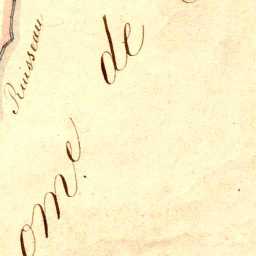 Ruisseau
om.e de